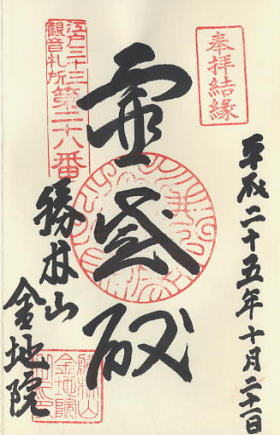 奉拝結縁
平成二十五年十月二十一日
霊殿
江戸三十三
観音札所
第二十八番
勝林山
金地院
勝林山
金地院